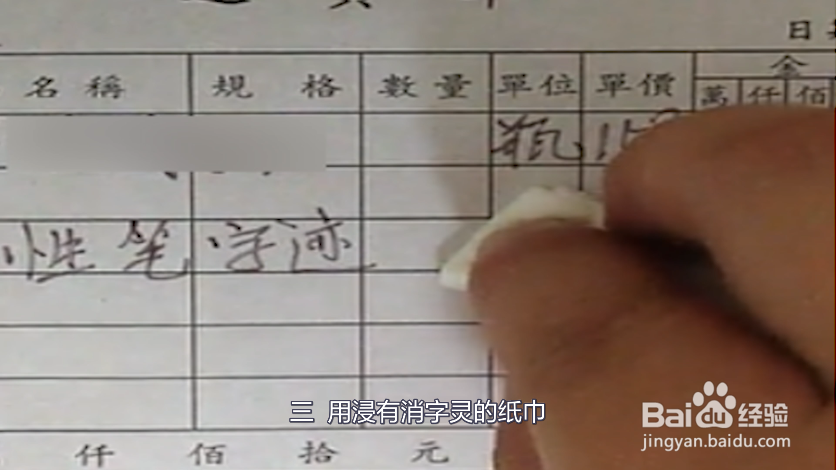 日
名稱 規格 數量 單位 單價 金
萬 仟 佰
瓶
性笔字迹
三 用浸有消字灵的纸巾
仟 佰 拾 元
Bai du 经验
jingyan.baidu.com